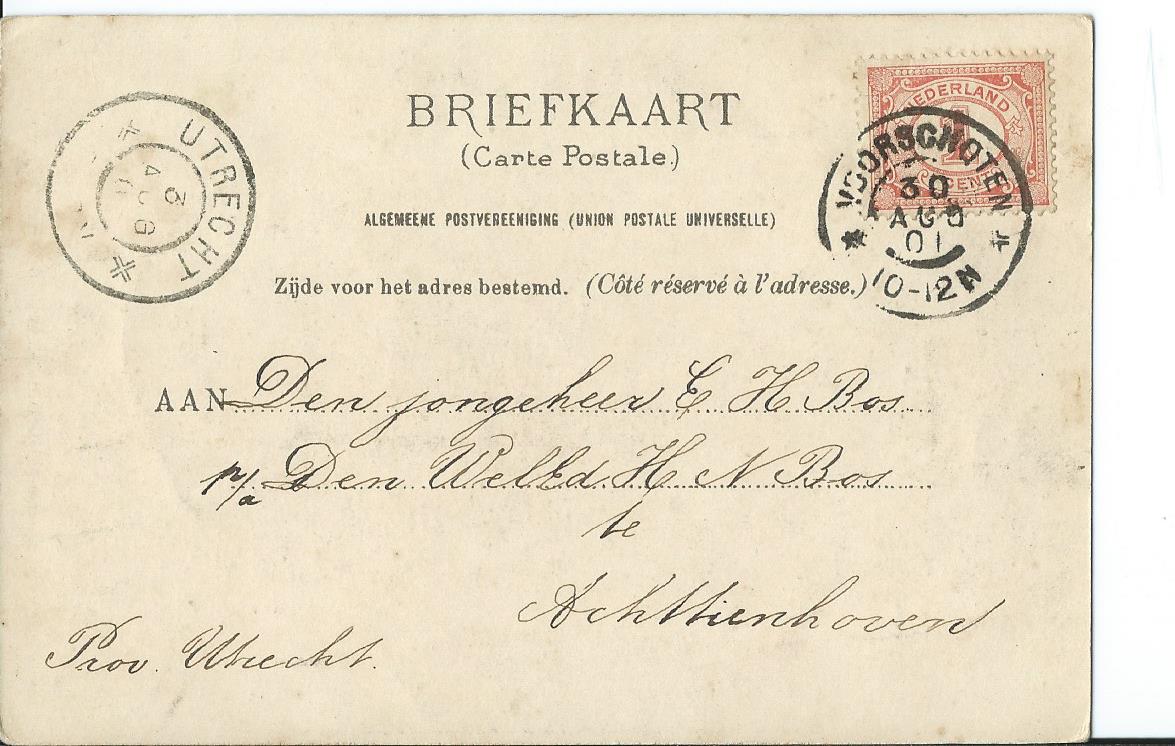 BRIEFKAART
(Carte Postale.)
ALGEMEENE POSTVEREENIGING (UNION POSTALE UNIVERSELLE)
Zijde voor het adres bestemd. (Côté réservé à l'adresse.)
UTRECHT
3
NEDERLAND
1
CENT
VOORSCHOTEN
30
AUG
01
10-12N
AAN Den jongeheer E H Bos
p/a Den WelEd H N Bos
te
Achttienhoven
Prov. Utrecht.